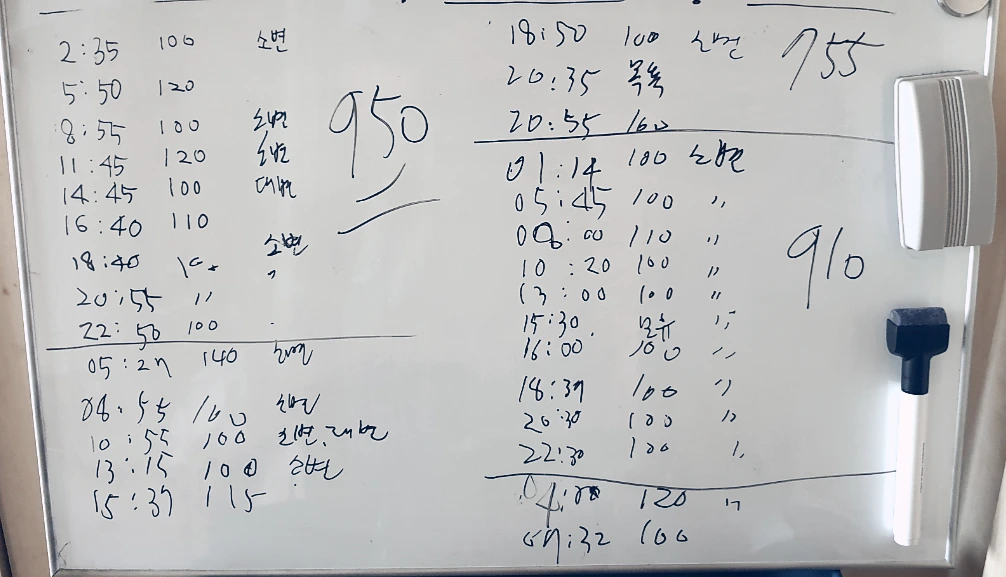 2:35 100 소변
5:50 120
8:55 100 소변
11:45 120 소변
14:45 100 대변
16:40 110
18:40 소변
20:55 〃
22:50 100
950
05:27 140 소변
08:55 100 소변
10:55 100 소변, 대변
13:15 100 소변
15:37 115
18:50 100 소변
20:35 목욕
20:55 160
755
01:14 100 소변
05:45 100 〃
08:00 110 〃
10:20 100 〃
13:00 100 〃
15:30 모유 〃
16:00 100 〃
18:37 100 〃
20:30 100 〃
22:30 100 〃
910
04:00 120 〃
07:32 100